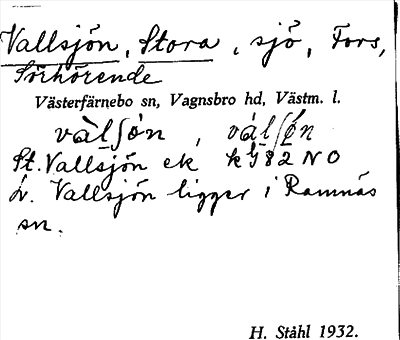 Vallsjön, Stora, sjö, Fors,
Sörhörende
Västerfärnebo sn, Vagnsbro hd, Västm. l.
vàlʃón, válʃón
St. Vallsjön ek kg 82 NO
Lv. Vallsjön ligger i Ramnäs
sn.
H. Ståhl 1932.